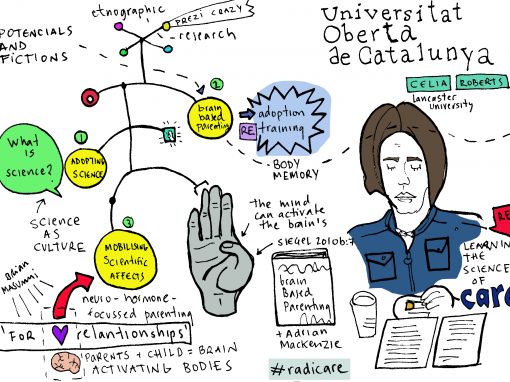 etnographic
PREZI CRAZY
research
POTENCIALS
AND
FICTIONS
Universitat
Oberta
de Catalunya
CELIA ROBERTS
Lancaster
University
2
brain
based
Parenting
RE
adoption
training
BODY
MEMORY
What
is
science?
1
ADOPTING
SCIENCE
SCIENCE
AS
CULTURE
3
MOBILISING
Scientific
AFFECTS
the mind
can activate
the brain's
SIEGEL 2010b:7
brain
Based
Parenting
+ Adrian
MacKenzie
RE
LEARNING
THE
SCIENCE
OF
care
Brian
Massumi
neuro-hormone-
focussed parenting
"FOR relationships"
PARENTS + CHILD = BRAIN
ACTIVATING BODIES
#radicare